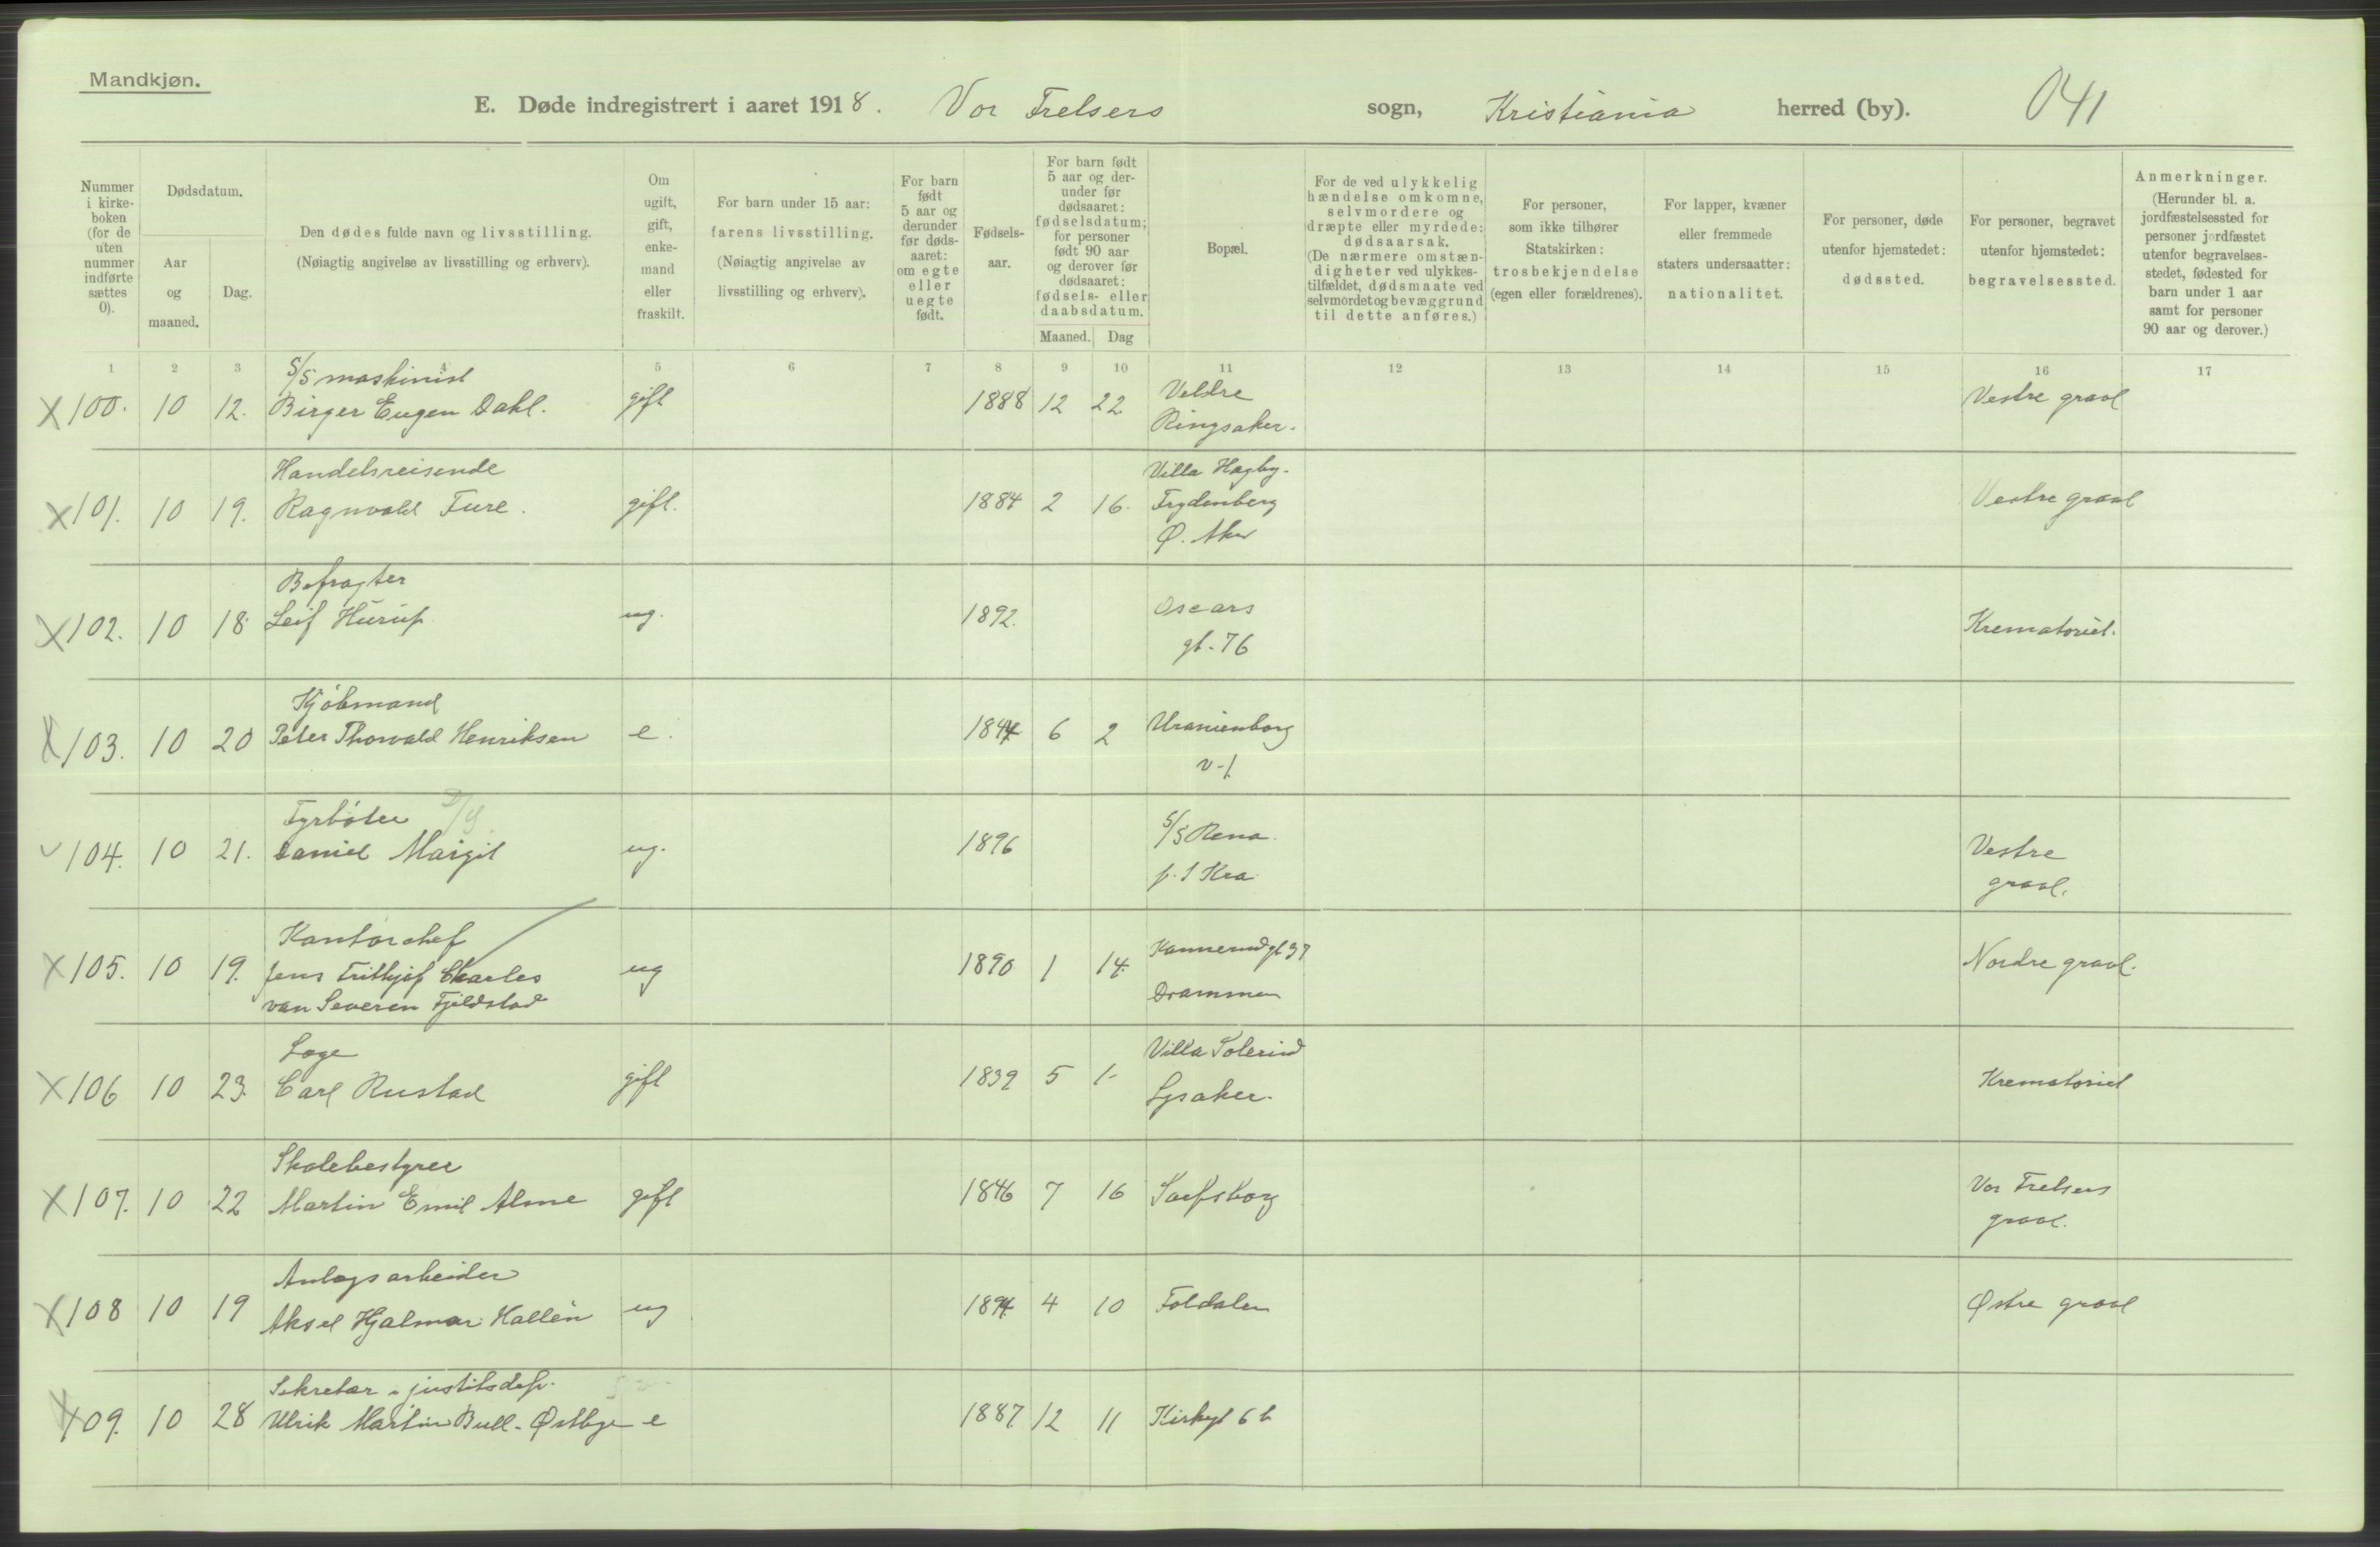 Mandkjøn.
E. Døde indregistrert i aaret 1918. Vor Frelsers sogn, Kristiania herred (by). 041
Nummer i kirke-boken (for de uten nummer indførte sættes 0).
Dødsdatum.
Aar og maaned.
Dag.
Den dødes fulde navn og livsstilling.
(Nøiagtig angivelse av livsstilling og erhverv).
Om ugift, gift, enke-mand eller fraskilt.
For barn under 15 aar: farens livsstilling. (Nøiagtig angivelse av livsstilling og erhverv).
For barn født 5 aar og derunder før døds-aaret: om egte eller uegte født.
Fødsels-aar.
For barn født 5 aar og der-under før dødsaaret: fødselsdatum; for personer født 90 aar og derover før dødsaaret: fødsels- eller daabsdatum.
Maaned. Dag
Bopæl.
For de ved ulykkelig hændelse omkomne, selvmordere og dræpte eller myrdede: dødsaarsak. (De nærmere omstæn-digheter ved ulykkes-tilfældet, dødsmaate ved selvmordet og bevæggrund til dette anføres.)
For personer, som ikke tilhører Statskirken: trosbekjendelse (egen eller forældrenes).
For lapper, kvæner eller fremmede staters undersaatter: nationalitet.
For personer, døde utenfor hjemstedet: dødssted.
For personer, begravet utenfor hjemstedet: begravelsessted.
Anmerkninger. (Herunder bl. a. jordfæstelsessted for personer jordfæstet utenfor begravelses-stedet, fødested for barn under 1 aar samt for personer 90 aar og derover.)
1 2 3 4 5 6 7 8 9 10 11 12 13 14 15 16 17
S/S maskinist
X 100. 10 12. Birger Eugen Dahl. gift 1888 12 22 Veldre Vestre gravl
Ringsaker.
Handelsreisende Villa Hagby.
X 101. 10 19. Ragnvald Fure. gift. 1884 2 16. Frydenberg Vestre gravl
Ø. Aker
Befragter
X 102. 10 18. Leif Hurup. ug. 1892. Oscars Krematoriet.
gt. 76
Kjøbmand
X 103. 10 20 Peter Thorvald Henriksen e. 1844 6 2 Uranienborg
v-1
Fyrbøter
104. 10 21. Daniel Margit ug. 1896 S/S Rena. Vestre
p. t Kra. gravl.
Kontorchef
X 105. 10 19. Jens Frithjof Charles ug 1890 1 14. gt 37 Nordre gravl.
van Severen Fjeldstad Drammen
Læge Villa Solerud
X 106 10 23. Carl Rustad gift 1839 5 1- Lysaker. Krematoriet
Skolebestyrer
X 107. 10 22 Martin Emil Alme gift 1846 7 16 Sarpsborg Vor Frelsers
gravl.
Anlegsarbeider
X 108 10 19 Aksel Hjalmar Hallén ug 1894 4 10 Foldalen Østre gravl
Sekretær i justitsdep.
X 109. 10 28 Ulrik Martin Bull-Østbye e 1887 12 11 Kirkegt 6 b